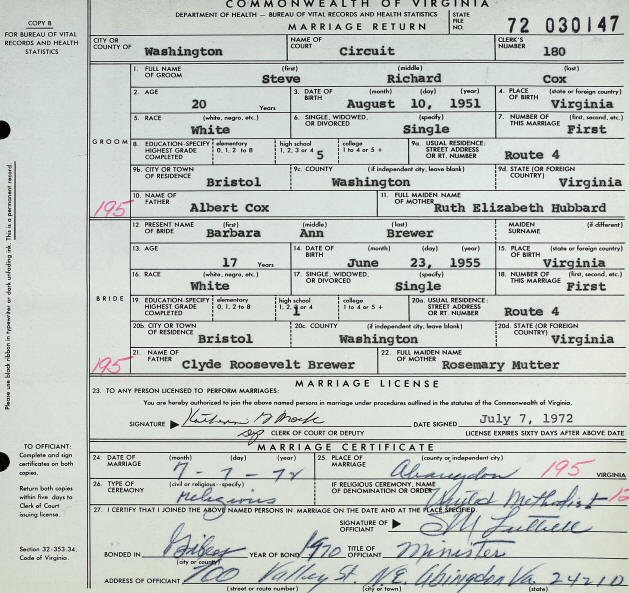 COMMONWEALTH OF VIRGINIA
DEPARTMENT OF HEALTH — BUREAU OF VITAL RECORDS AND HEALTH STATISTICS
MARRIAGE RETURN
COPY B
FOR BUREAU OF VITAL RECORDS AND HEALTH STATISTICS
STATE FILE NO. 72 030147
CITY OR COUNTY OF Washington NAME OF COURT Circuit CLERK'S NUMBER 180
GROOM
1. FULL NAME OF GROOM (first) Steve (middle) Richard (last) Cox
2. AGE 20 Years 3. DATE OF BIRTH (month) (day) (year) August 10, 1951 4. PLACE OF BIRTH (state or foreign country) Virginia
5. RACE (white, negro, etc.) White 6. SINGLE, WIDOWED, OR DIVORCED (specify) Single 7. NUMBER OF THIS MARRIAGE (first, second, etc.) First
8. EDUCATION-SPECIFY HIGHEST GRADE COMPLETED elementary 0, 1, 2 to 8 high school 1, 2, 3 or 4 5 college 1 to 4 or 5 + 9a. USUAL RESIDENCE: STREET ADDRESS OR RT. NUMBER Route 4
9b. CITY OR TOWN OF RESIDENCE Bristol 9c. COUNTY (if independent city, leave blank) Washington 9d. STATE (OR FOREIGN COUNTRY) Virginia
195 10. NAME OF FATHER Albert Cox 11. FULL MAIDEN NAME OF MOTHER Ruth Elizabeth Hubbard
BRIDE
12. PRESENT NAME OF BRIDE (first) Barbara (middle) Ann (last) Brewer MAIDEN SURNAME (if different)
13. AGE 17 Years 14. DATE OF BIRTH (month) (day) (year) June 23, 1955 15. PLACE OF BIRTH (state or foreign country) Virginia
16. RACE (white, negro, etc.) White 17. SINGLE, WIDOWED, OR DIVORCED (specify) Single 18. NUMBER OF THIS MARRIAGE (first, second, etc.) First
19. EDUCATION-SPECIFY HIGHEST GRADE COMPLETED elementary 0, 1, 2 to 8 high school 1, 2, 3 or 4 1 college 1 to 4 or 5 + 20a. USUAL RESIDENCE: STREET ADDRESS OR RT. NUMBER Route 4
20b. CITY OR TOWN OF RESIDENCE Bristol 20c. COUNTY (if independent city, leave blank) Washington 20d. STATE (OR FOREIGN COUNTRY) Virginia
195 21. NAME OF FATHER Clyde Roosevelt Brewer 22. FULL MAIDEN NAME OF MOTHER Rosemary Mutter
Please use black ribbon in typewriter or dark unfading ink. This is a permanent record.
MARRIAGE LICENSE
23. TO ANY PERSON LICENSED TO PERFORM MARRIAGES:
You are hereby authorized to join the above named persons in marriage under procedures outlined in the statutes of the Commonwealth of Virginia.
SIGNATURE DATE SIGNED July 7, 1972
CLERK OF COURT OR DEPUTY LICENSE EXPIRES SIXTY DAYS AFTER ABOVE DATE
MARRIAGE CERTIFICATE
TO OFFICIANT:
Complete and sign certificates on both copies.
Return both copies within five days to Clerk of Court issuing license.
Section 32-353.34. Code of Virginia.
24. DATE OF MARRIAGE (month) (day) (year) 7-7-72 25. PLACE OF MARRIAGE (county or independent city) Abingdon 195 VIRGINIA
26. TYPE OF CEREMONY (civil or religious-specify) religious IF RELIGIOUS CEREMONY, NAME OF DENOMINATION OR ORDER United Methodist
27. I CERTIFY THAT I JOINED THE ABOVE NAMED PERSONS IN MARRIAGE ON THE DATE AND AT THE PLACE SPECIFIED.
SIGNATURE OF OFFICIANT
BONDED IN (city or county) YEAR OF BOND 1970 TITLE OF OFFICIANT Minister
ADDRESS OF OFFICIANT 700 Valley St. N.E. Abingdon Va. 24210
(street or route number) (city or town) (state)